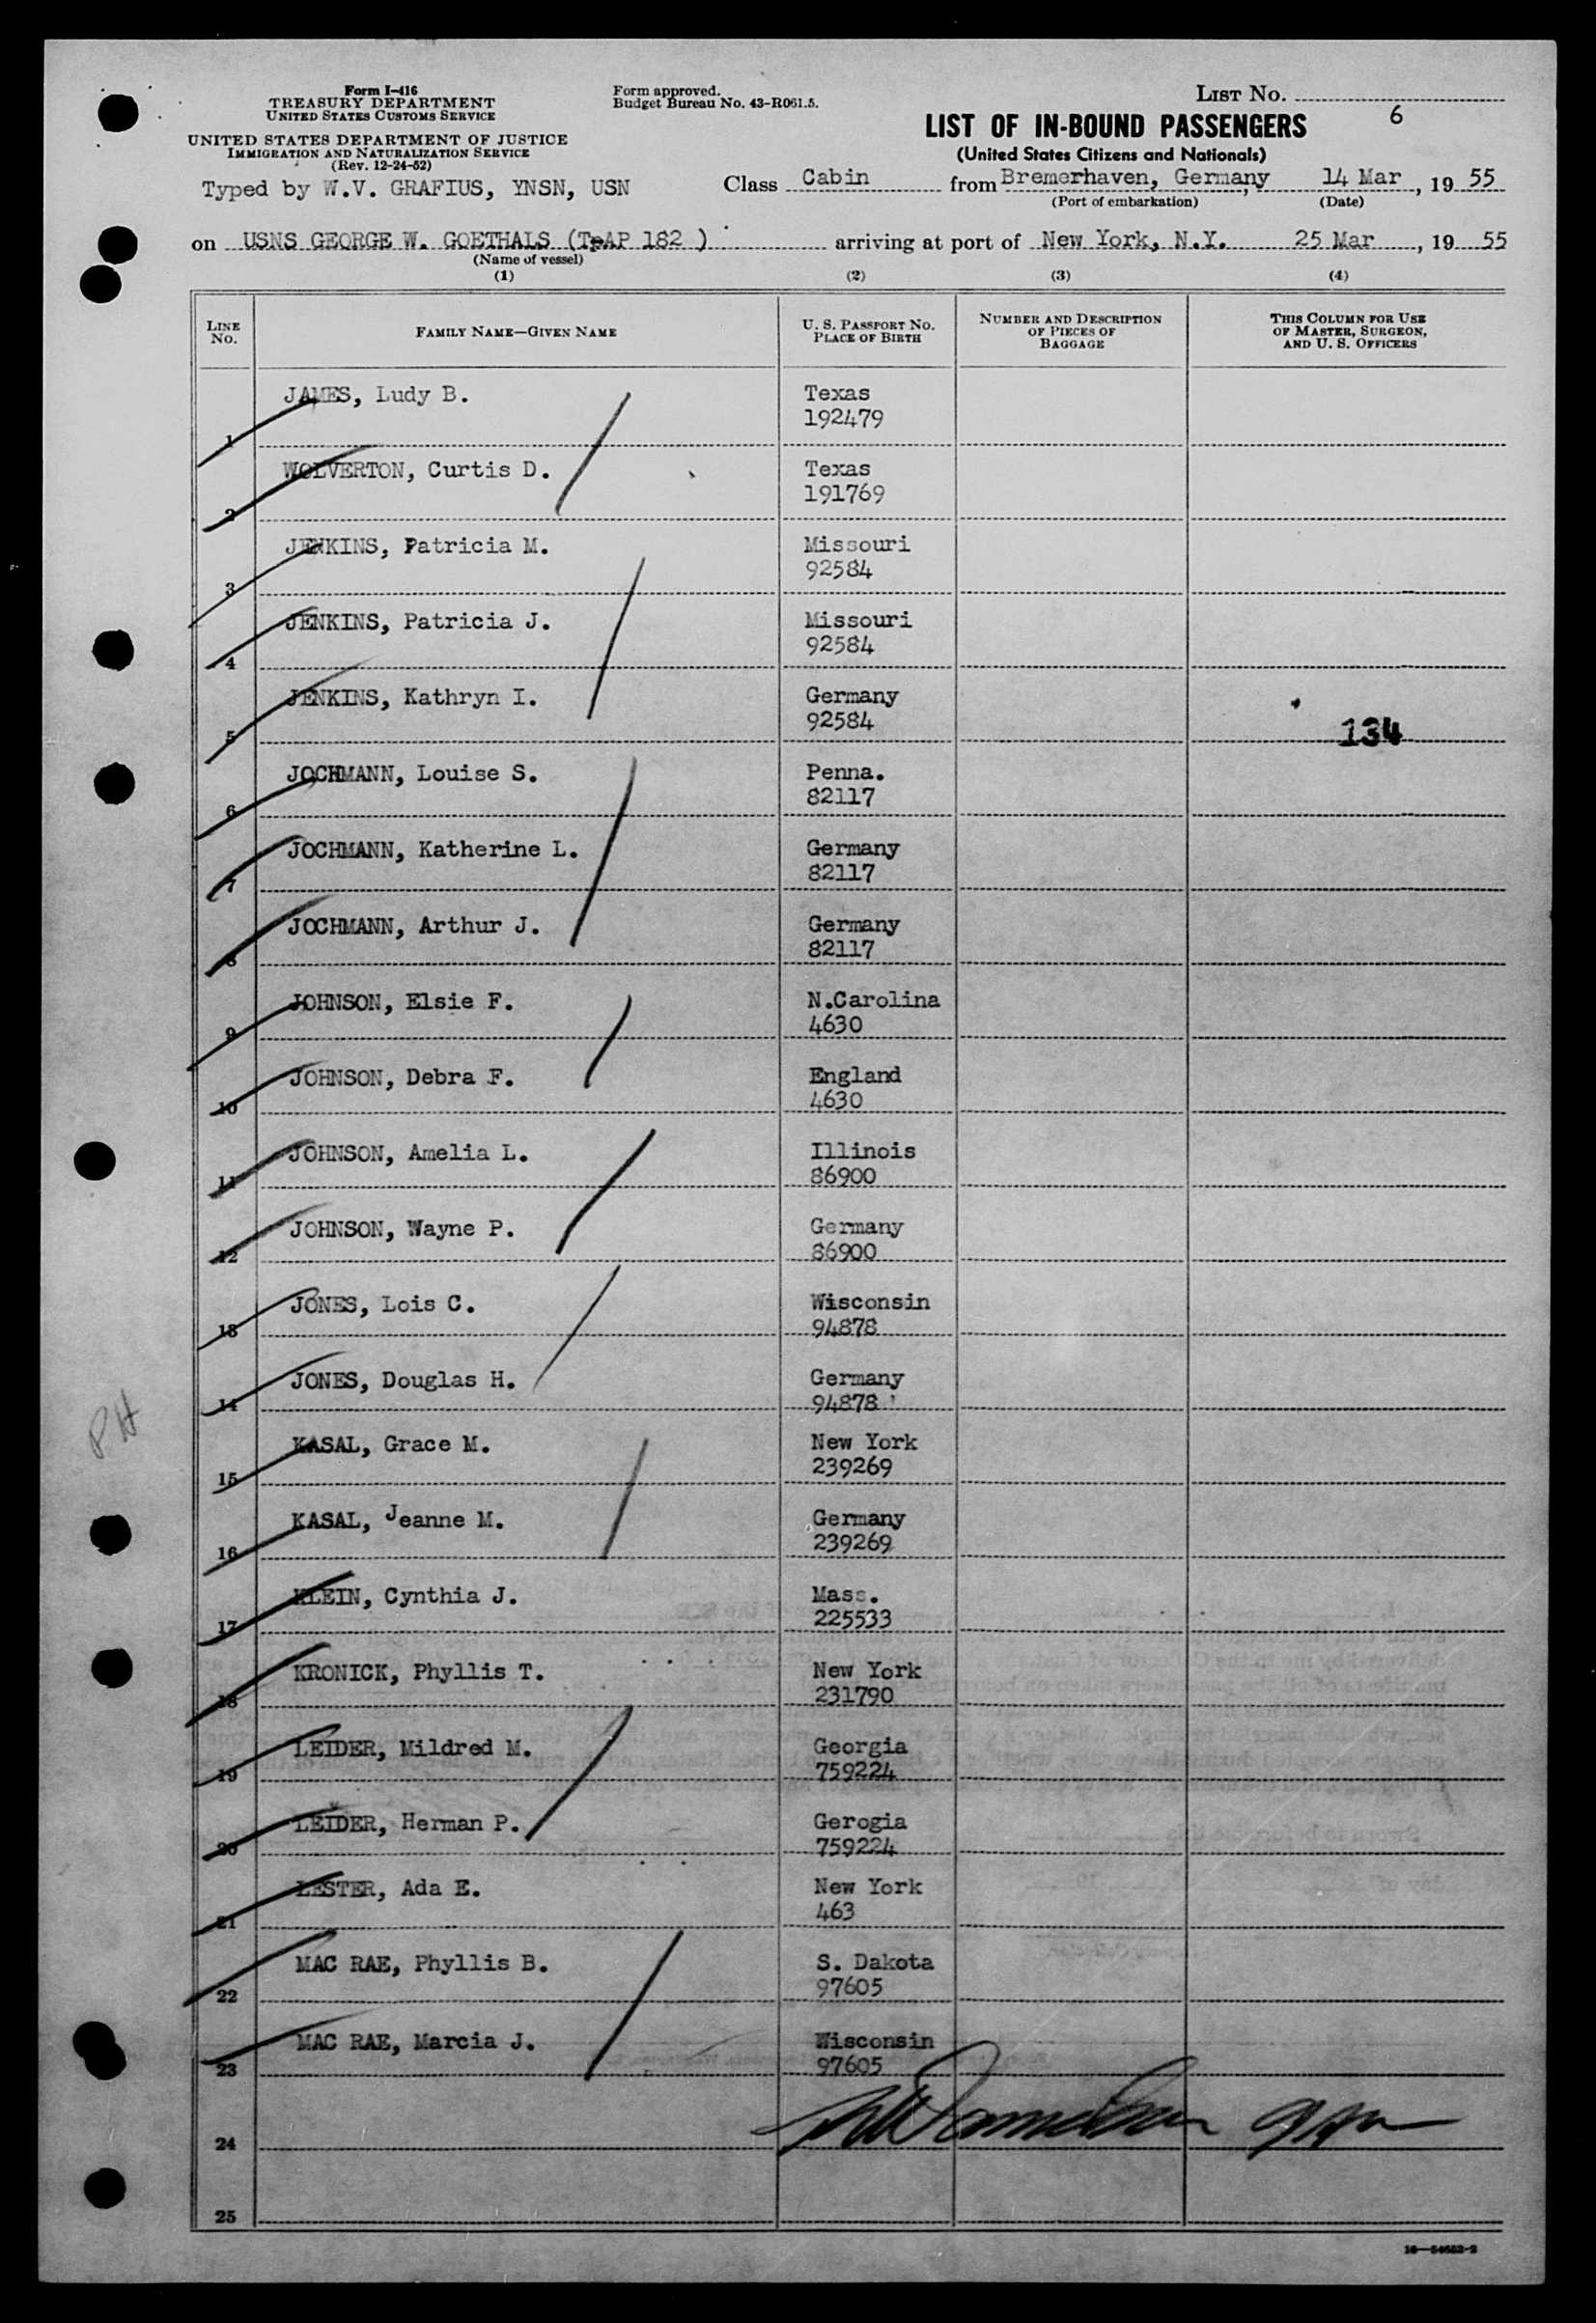 Form I-416
TREASURY DEPARTMENT
UNITED STATES CUSTOMS SERVICE
UNITED STATES DEPARTMENT OF JUSTICE
IMMIGRATION AND NATURALIZATION SERVICE
(Rev. 12-24-52)
Form approved.
Budget Bureau No. 43-R061.5.
LIST NO.
6
LIST OF IN-BOUND PASSENGERS
(United States Citizens and Nationals)
Typed by W.V. GRAFIUS, YNSN, USN
Class Cabin from Bremerhaven, Germany 14 Mar, 19 55
(Port of embarkation) (Date)
on USNS GEORGE W. GOETHALS (T-AP 182 ) arriving at port of New York, N.Y. 25 Mar, 19 55
(Name of vessel)
(1) (2) (3) (4)
LINE NO. FAMILY NAME—GIVEN NAME U. S. PASSPORT NO. PLACE OF BIRTH NUMBER AND DESCRIPTION OF PIECES OF BAGGAGE THIS COLUMN FOR USE OF MASTER, SURGEON, AND U. S. OFFICERS
JAMES, Ludy B. Texas
1 192479
WOLVERTON, Curtis D. Texas
2 191769
JENKINS, Patricia M. Missouri
3 92584
JENKINS, Patricia J. Missouri
4 92584
JENKINS, Kathryn I. Germany
5 92584 134
JOCHMANN, Louise S. Penna.
6 82117
JOCHMANN, Katherine L. Germany
7 82117
JOCHMANN, Arthur J. Germany
8 82117
JOHNSON, Elsie F. N.Carolina
9 4630
JOHNSON, Debra F. England
10 4630
JOHNSON, Amelia L. Illinois
11 86900
JOHNSON, Wayne P. Germany
12 86900
JONES, Lois C. Wisconsin
13 94878
JONES, Douglas H. Germany
14 94878
PH
KASAL, Grace M. New York
15 239269
KASAL, Jeanne M. Germany
16 239269
KLEIN, Cynthia J. Mass.
17 225533
KRONICK, Phyllis T. New York
18 231790
LEIDER, Mildred M. Georgia
19 759224
LEIDER, Herman P. Gerogia
20 759224
LESTER, Ada E. New York
21 463
MAC RAE, Phyllis B. S. Dakota
22 97605
MAC RAE, Marcia J. Wisconsin
23 97605
24
25